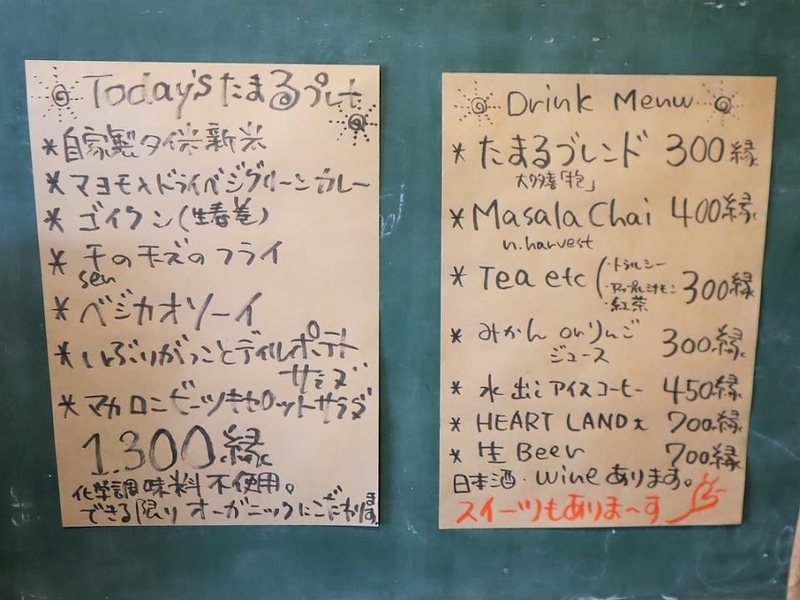 Today's たまるプレート
*自家製タイ米新米
*マヨモ入ドライベジグリーンカレー
*ゴイクン(生春巻)
*千の玉ズのフライ
sen
*ベジカオソーイ
*いぶりがっことディルポテト
サラダ
*マカロニビーツキャロットサラダ
1.300縁
化学調味料不使用。
できる限りオーガニックにこだわります
Drink Menu
*たまるブレンド 300縁
大多喜「抱」
*Masala Chai 400縁
n.harvest
*Tea etc 300縁
・トゥルシー
・紅茶
*みかん orりんご
ジュース 300縁
*水出しアイスコーヒー 450縁
*HEART LAND大 700縁
*生Beer 700縁
日本酒・wineあります。
スイーツもありま〜す